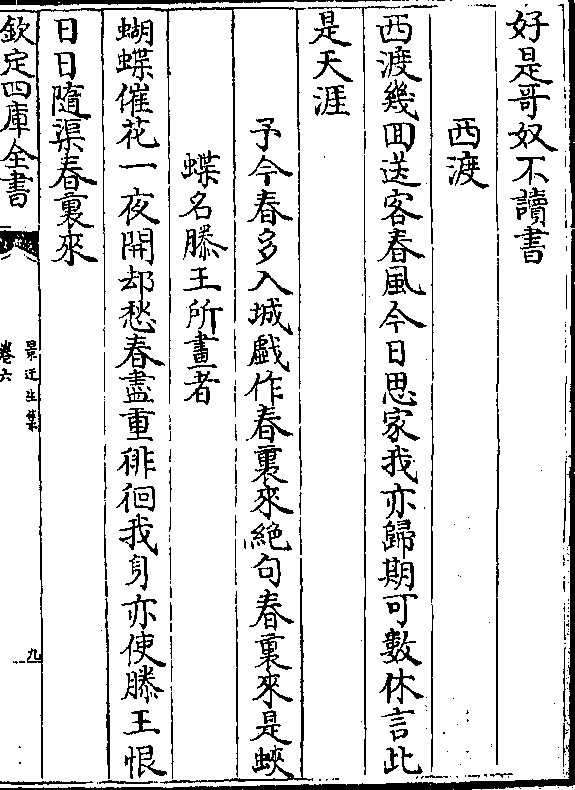 好是哥奴不讀書
西渡
西渡幾回送客春風今日思家我亦歸期可數休言此
是天涯
予今春多入城戲作春裏來絶句春裏來是蛺
蝶名滕王所畫者
蝴蝶催花一夜開却愁春盡重徘徊我身亦使滕王恨
日日隨渠春裏來
欽定四庫全書
景迂生集
卷六
九